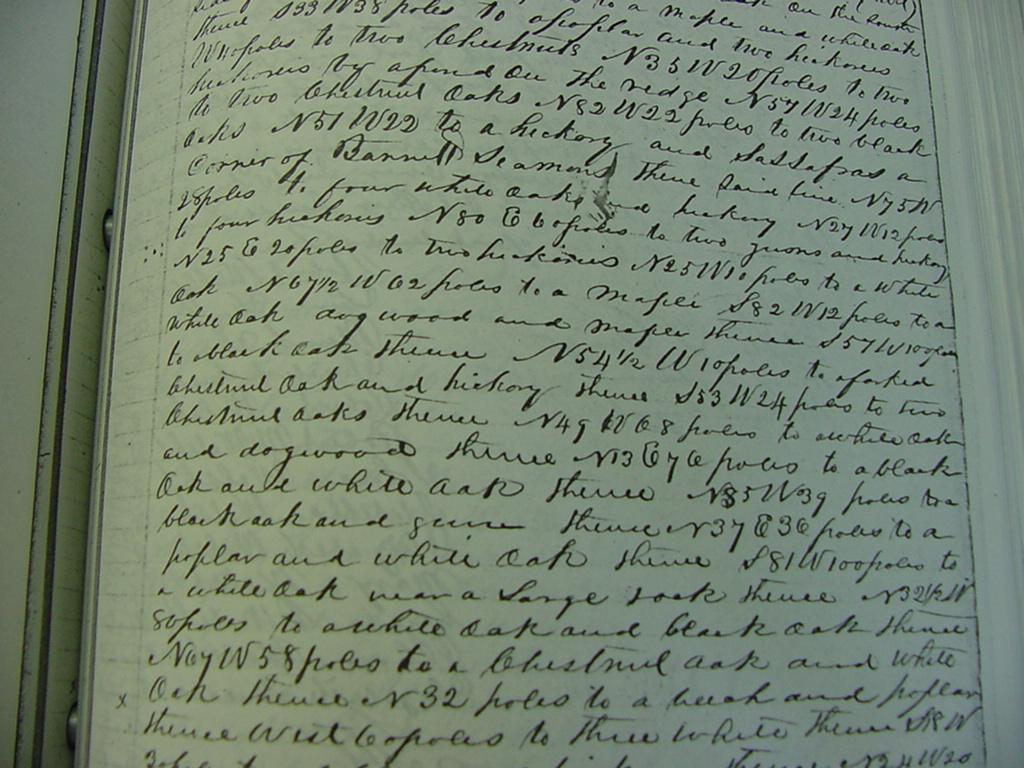 on the south
thence S33W38 poles to a maple and white oak
W40poles to a poplar and two hickories
hickories by a pond on the ridge N35W20poles to two
to two Chestnut Oaks N82W22 poles to two black N57W24 poles
Oaks N51W22 to a hickory and Sassafras a
Corner of Seamons thence said line N75W
28poles to four white oaks and hickory N27W12poles
to four hickories N80E60poles to two gums and hickory
N25E20poles to two hickories N25W10 poles to a white
Oak N67½W62 poles to a maple S82W12 poles to a
white Oak dogwood and maple thence S57W100poles
to black oak thence N54½W10poles to a forked
Chestnut Oak and hickory thence S53W24 poles to two
Chestnut oaks thence N49W68 poles to a white oak
and dogwood thence N13E76 poles to a black
Oak and white oak thence N35W39 poles to a
black oak and gum thence N37E36poles to a
poplar and white Oak thence S81W100poles to
a white Oak near a Large rock thence N32½W
80poles to a white Oak and black Oak thence
N67W58poles to a Chestnut oak and white
x Oak thence N32 poles to a beech and poplar
thence West 60poles to three white thence S18W
N34W20